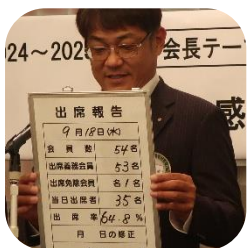 024～202
会長テー
感
出席報告
9月18日(水)
会員数 54名
出席義務会員 53名
出席免除会員 名1名
当日出席者 35名
出席率 64.8%
月 日の修正